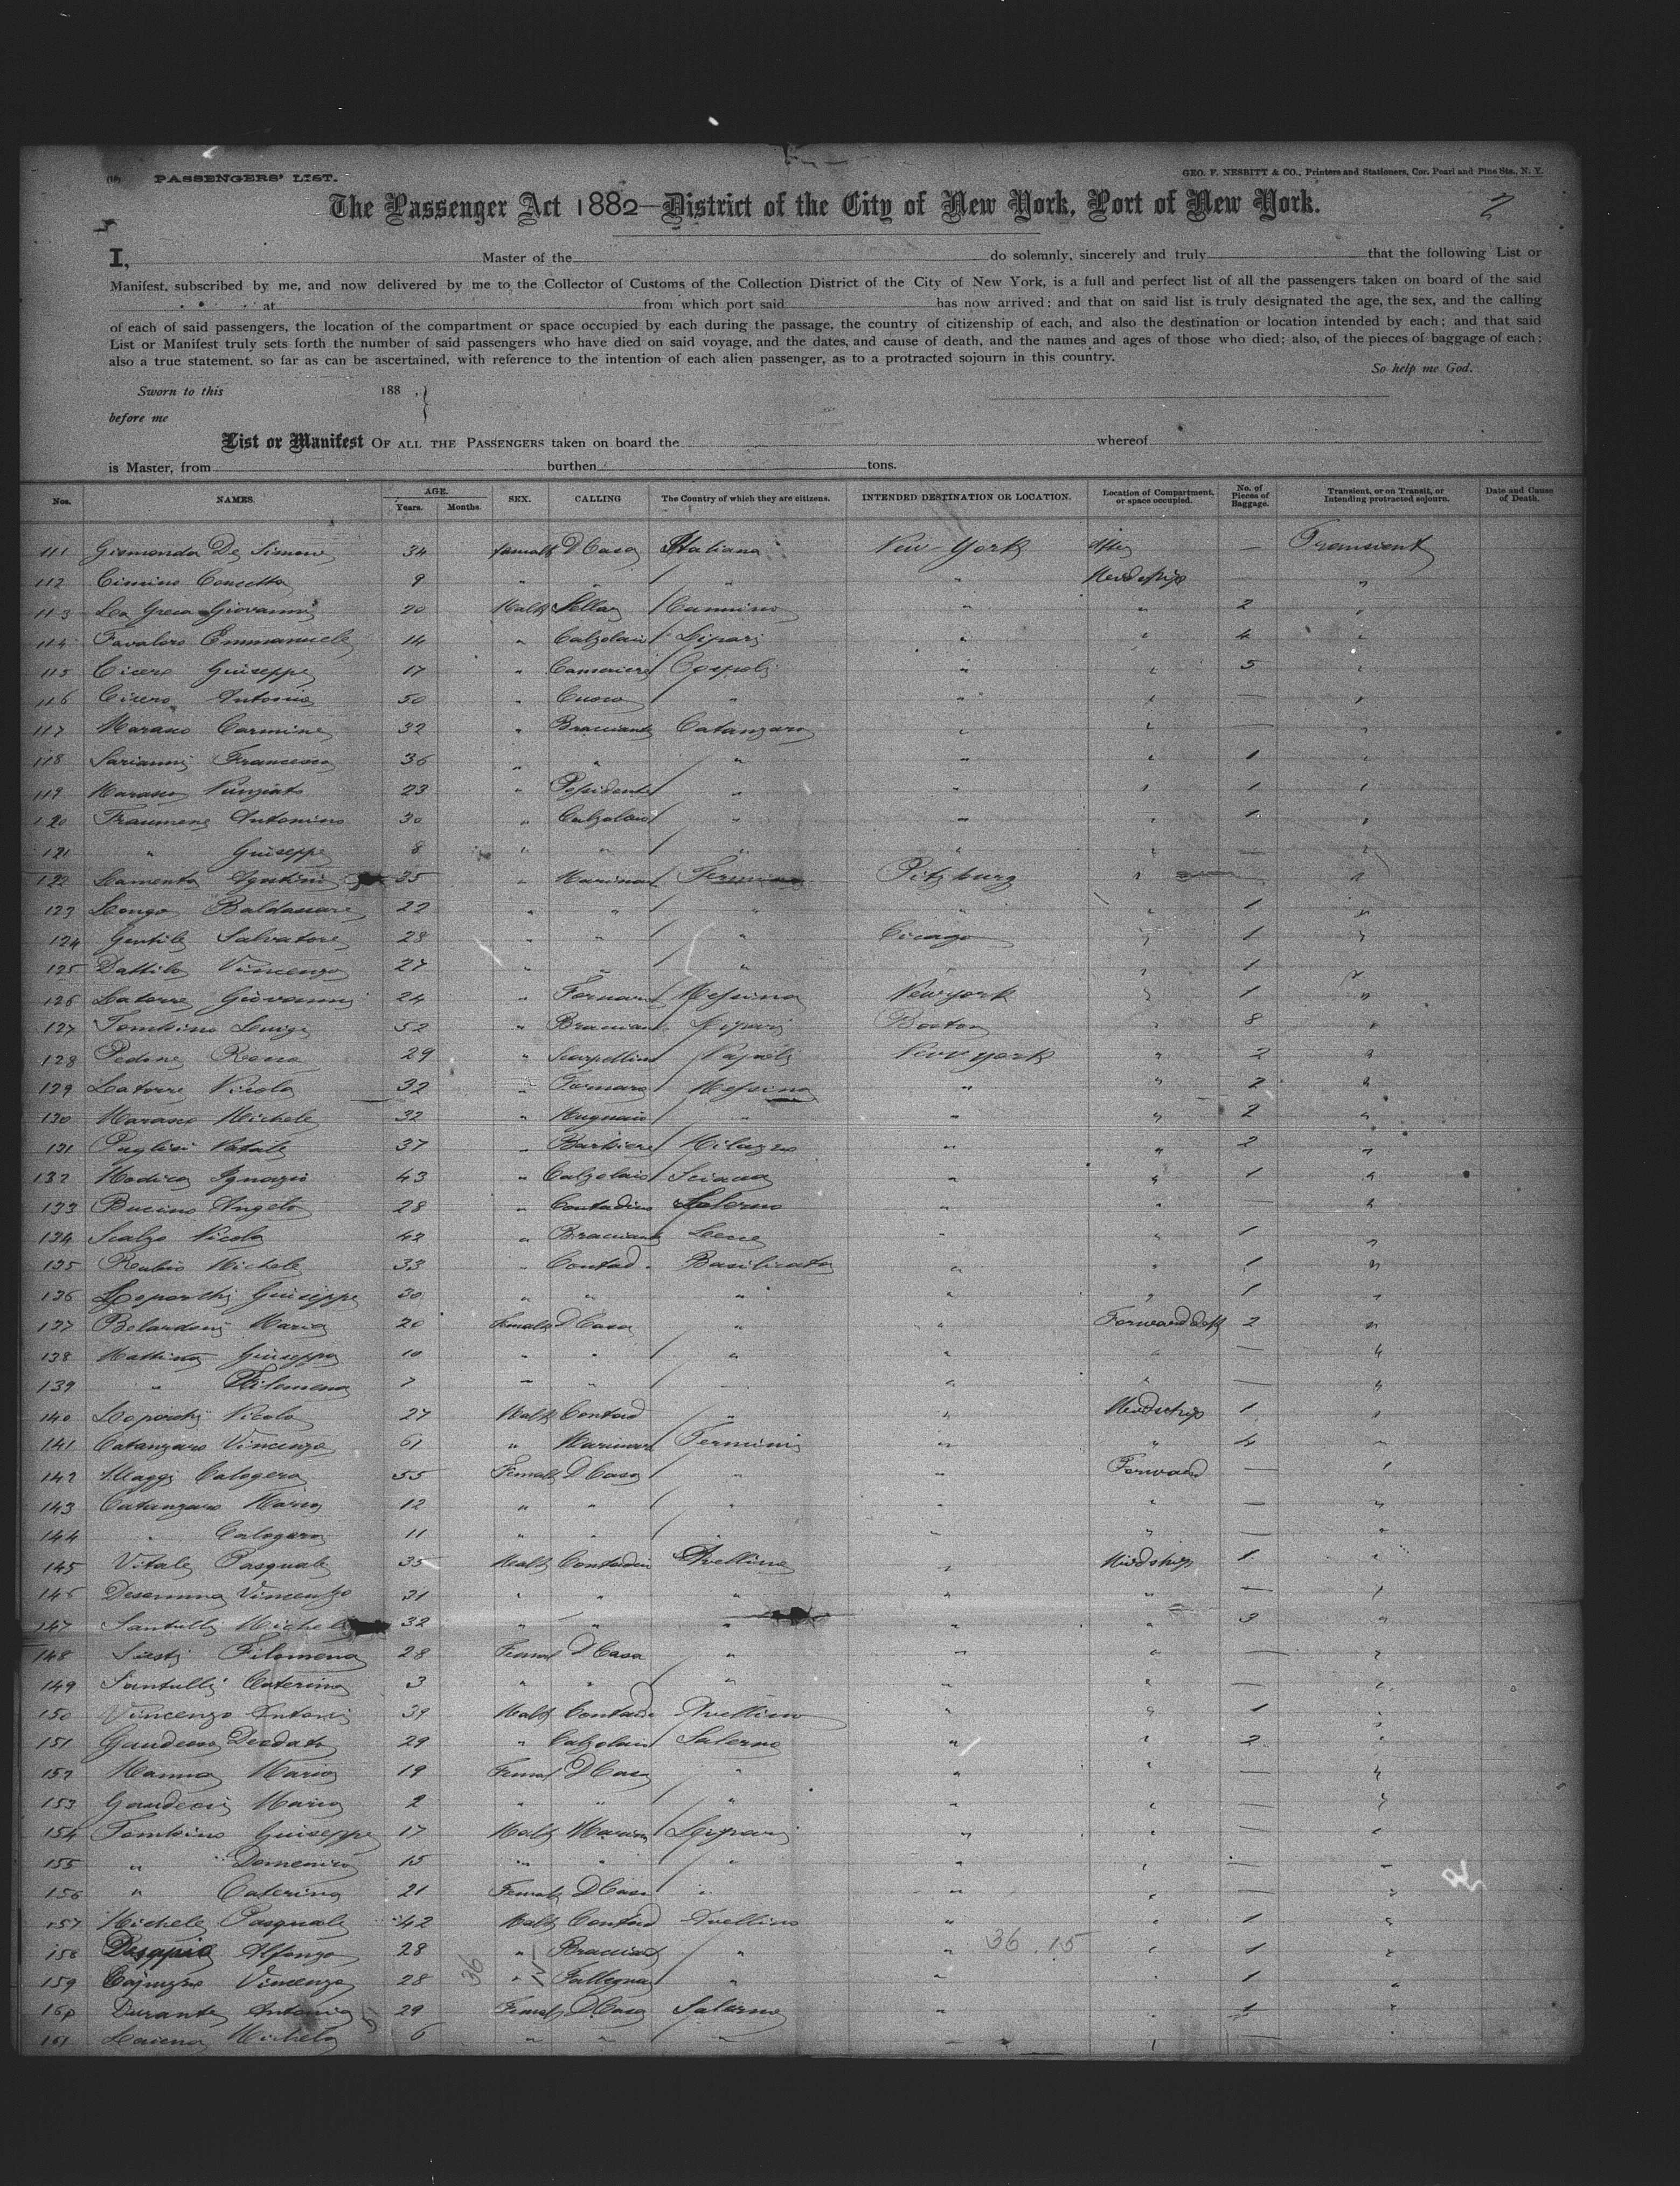 PASSENGERS' LIST.
GEO. F. NESBITT & CO., Printers and Stationers, Cor. Pearl and Pine Sts., N. Y.
The Passenger Act 1882—District of the City of New York, Port of New York.
2
I, Master of the do solemnly, sincerely and truly that the following List or
Manifest, subscribed by me, and now delivered by me to the Collector of Customs of the Collection District of the City of New York, is a full and perfect list of all the passengers taken on board of the said
at from which port said has now arrived; and that on said list is truly designated the age, the sex, and the calling
of each of said passengers, the location of the compartment or space occupied by each during the passage, the country of citizenship of each, and also the destination or location intended by each; and that said
List or Manifest truly sets forth the number of said passengers who have died on said voyage, and the dates, and cause of death, and the names and ages of those who died; also, of the pieces of baggage of each;
also a true statement, so far as can be ascertained, with reference to the intention of each alien passenger, as to a protracted sojourn in this country.
So help me God.
Sworn to this 188 .}
before me
List or Manifest OF ALL THE PASSENGERS taken on board the whereof
is Master, from burthen tons.
Nos. NAMES. AGE. Years. Months. SEX. CALLING The Country of which they are citizens. INTENDED DESTINATION OR LOCATION. Location of Compartment, or space occupied. No. of Pieces of Baggage. Transient, or on Transit, or Intending protracted sojourn. Date and Cause of Death.
111 Gismonda De Simone 34 female D Casa Italiana New-York After — Transient
112 Cimino Concetta 9 " " " " Meedships "
113 La Greca Giovanni 20 Male " " 2 "
114 Favaloro Emmanuele 14 " Calzolaio Lipari " " 4 "
115 Cicero Giuseppe 17 " Cameriere " " 5 "
116 Cicero Antonio 50 " Cuoco " " " — "
117 Marasco Carmine 32 " Bracciante Catanzaro " " — "
118 Sarianni Francesco 36 " " " " " 1 "
119 Marasco Nunziato 23 " Possidente " " " 1 "
120 Antonino 30 " Calzolaio " " " 1 "
121 " Giuseppe 8 " " " " " — "
122 Lamenta Agostino 35 " Marinaro Pitzburg " — "
123 Longo Baldassare 22 " " " " " 1 "
124 Gentile Salvatore 28 " " " Cicago " 1 "
125 Dattilo Vincenzo 27 " " " " " 1 "
126 Latorre Giovanni 24 " Fornaro Messina New york " 1 "
127 Luigi 52 " Bracciant. Lipari Boston " 8 "
128 Pedone Rocco 29 " Scarpellino Napoli New york " 2 "
129 Latorre Nicola 32 " Fornaro Messina " " 2 "
130 Marasco Michele 32 " Mugnaio " " " 2 "
131 Puglisi Natale 37 " Barbiere Milazzo " " 2 "
132 Modica Ignazio 43 " Calzolaio Sciacca " " 1 "
133 Bucino Angelo 28 " Contadino Salerno " " — "
134 Scalzo Nicola 42 " Bracciante Lecce " " 1 "
135 Rubio Michele 33 " Contad. Basilicata " " 1 "
136 Loporchi Giuseppe 30 " " " " " 1 "
137 Maria 20 female D Casa " " Forward deck 2 "
138 Mattina Giuseppa 10 " " " " " — "
139 " Filomena 7 " " " " " — "
140 Loporchi Nicola 27 Male Contad " " Meedships 1 "
141 Catanzaro Vincenzo 61 " Marinaro Termini " " 4 "
142 Maggi Calogera 55 Female D Casa " " Forward — "
143 Catanzaro Maria 12 " " " " " — "
144 " Calogera 11 " " " " " — "
145 Vitale Pasquale 35 Male Contadin Avellino " Midships 1 "
146 Vincenzo 31 " " " " " — "
147 Santulli Michele 32 " " " " " 3 "
148 Siesti Filomena 28 Femal D Casa " " " — "
149 Santulli Caterina 3 " " " " " — "
150 Vincenzo Antonio 39 Male Contadi Avellino " " 1 "
151 Deodato 29 " Calzolaio Salerno " " 2 "
152 Manna Maria 19 Femal D Casa " " " — "
153 Maria 2 " " " " " — "
154 Giuseppe 17 Male Marin Lipari " " — "
155 " Domenico 15 " " " " " — "
156 " Caterina 21 Female D Casa " " " — "
157 Michele Pasquale 42 Male Contad Avellino " " 1 "
158 Alfonzo 28 " Bracciant " " 36.15 " 1 "
159 Vincenzo 28 36 " Fallegna " " " 1 "
160 Durante Antonia 29 Female D Casa Salerno " " 1 "
161 Michela 6 " " " " " — "